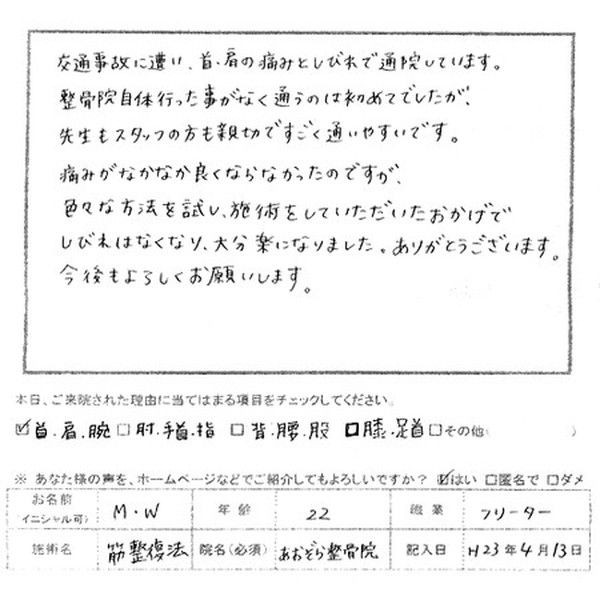 交通事故に遭い、首・肩の痛みとしびれで通院しています。
整骨院自体行った事がなく通うのは初めてでしたが、
先生もスタッフの方も親切ですごく通いやすいです。
痛みがなかなか良くならなかったのですが、
色々な方法を試し、施術をしていただいたおかげで
しびれはなくなり、大分楽になりました。ありがとうございます。
今後もよろしくお願いします。
本日、ご来院された理由に当てはまる項目をチェックしてください。
☑首・肩・腕 □肘・手首・指 □背・腰・股 □膝・足首 □その他( )
※ あなた様の声を、ホームページなどでご紹介してもよろしいですか? ☑はい □匿名で □ダメ
お名前(イニシャル可) M・W 年齢 22 職業 フリーター
施術名 筋整復法 院名(必須) あおぞら整骨院 記入日 H23年4月13日